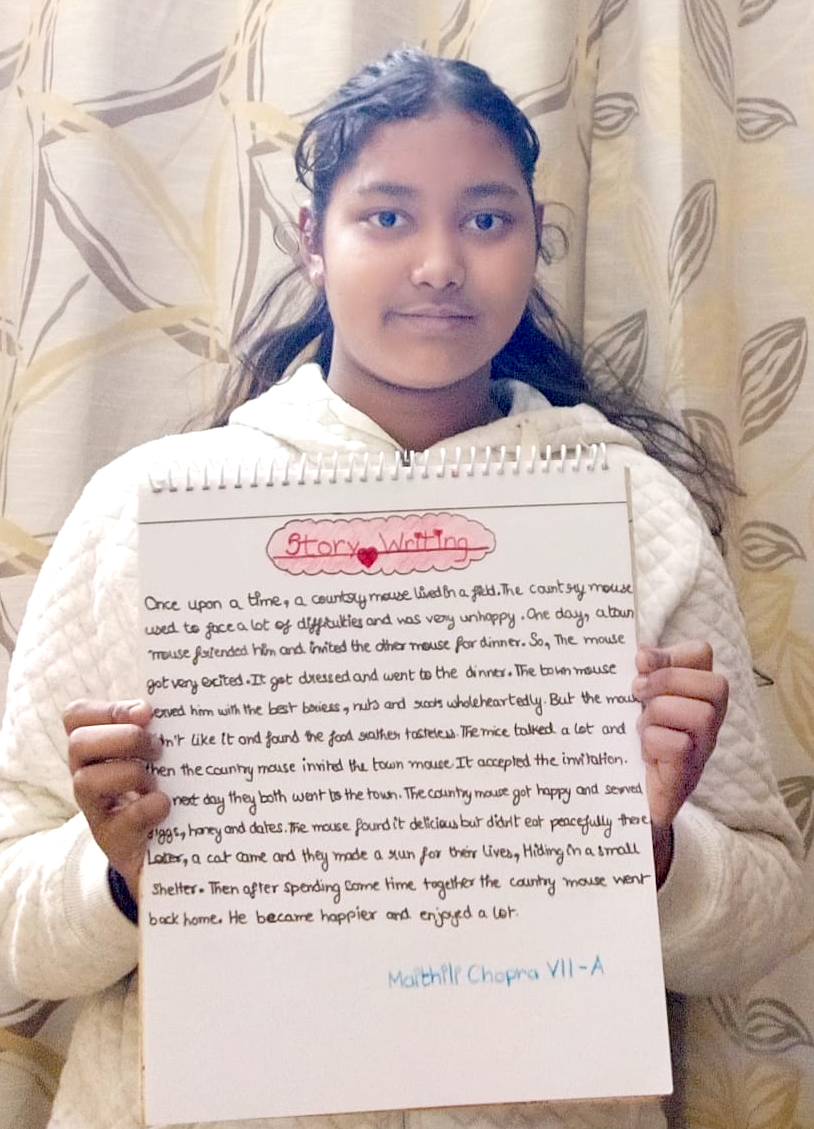 Story Writing
Once upon a time, a country mouse lived in a field. The country mouse
used to face a lot of difficulties and was very unhappy. One day, a town
mouse friended him and invited the other mouse for dinner. So, The mouse
got very excited. It got dressed and went to the dinner. The town mouse
erved him with the best berries, nuts and roots wholeheartedly. But the mous
dn't like it and found the food rather tasteless. The mice talked a lot and
then the country mouse invited the town mouse. It accepted the invitation.
next day they both went to the town. The country mouse got happy and served
figgs, honey and dates. The mouse found it delicious but didn't eat peacefully there
Later, a cat came and they made a run for their lives, Hiding in a small
shelter. Then after spending some time together the country mouse went
back home. He became happier and enjoyed a lot.
Maithili Chopra VII-A